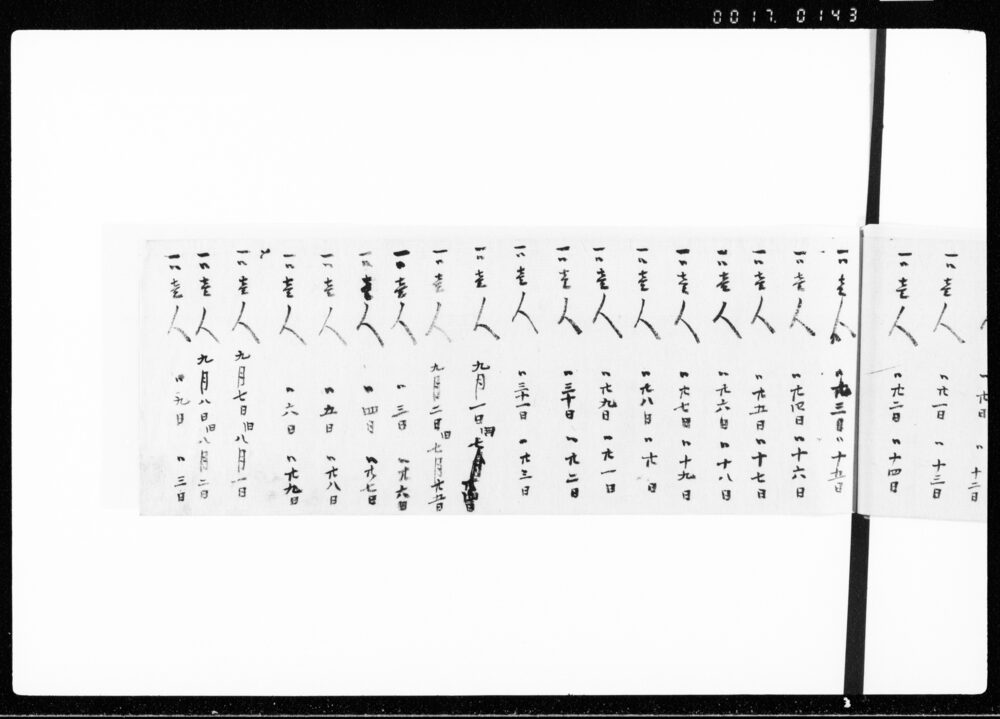 0017.0143
〃廿日 〃十二日
一〃壱人 〃廿一日 〃十三日
一〃壱人 〃廿二日 〃十四日
一〃壱人 〃廿三日 〃十五日
一〃壱人 〃廿四日 〃十六日
一〃壱人 〃廿五日 〃十七日
一〃壱人 〃廿六日 〃十八日
一〃壱人 〃廿七日 〃十九日
一〃壱人 〃廿八日 〃廿日
一〃壱人 〃廿九日 〃廿一日
一〃壱人 〃三十日 〃廿二日
一〃壱人 〃三十一日 〃廿三日
一〃壱人 九月一日旧七月廿四日
一〃壱人 九月二日旧七月廿五日
一〃壱人 〃三日 〃廿六日
一〃壱人 〃四日 〃廿七日
一〃壱人 〃五日 〃廿八日
一〃壱人 〃六日 〃廿九日
一〃壱人 九月七日旧八月一日
一〃壱人 九月八日旧八月二日
一〃壱人 〃九日 〃三日